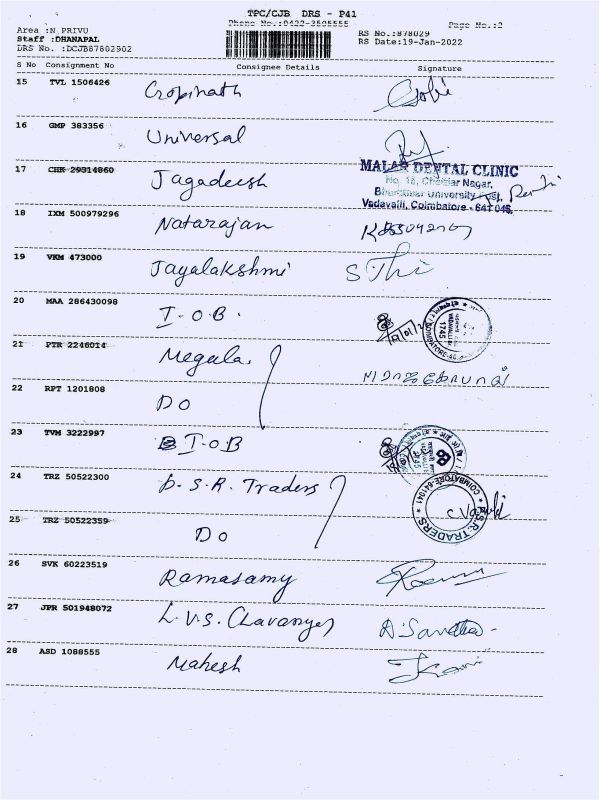 TPC/CJB DRS - P41
Phone No.:0422-3505555
Page No.:2
Area :N_PRIVU
Staff :DHANAPAL
DRS No. :DCJB87802902
RS No.:878029
RS Date:19-Jan-2022
S No Consignment No Consignee Details Signature
15 TVL 1506426 Gopinath Gopi
16 GMP 383356 Universal
17 CHK 29314860 Jagadeesh
MALAR DENTAL CLINIC
No. 18, Chettiar Nagar,
Bharathiar University Post,
Vadavalli, Coimbatore - 641 046.
18 IXM 500979296 Natarajan
19 VKM 473000 Jayalakshmi S.Thi
20 MAA 286430098 I-O-B.
1745
21 PTR 2246014 Megala
22 RPT 1201808 DO
23 TVM 3222997 I-O-B
24 TRZ 50522300 D-S.R. Traders
COIMBATORE-641041
S.R. TRADERS
25 TRZ 50522359 DO
26 SVK 60223519 Ramasamy
27 JPR 501948072 L.V.S. (Lavanya)
28 ASD 1088555 Mahesh